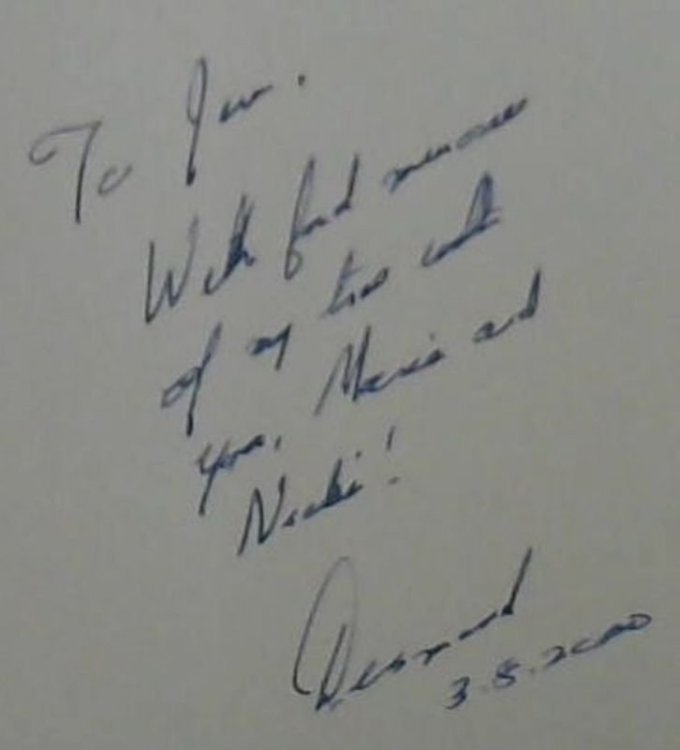 To Jan.
With fond memories
of my time with
you, Maria and
Nicki!
Desmond
3.5.2000